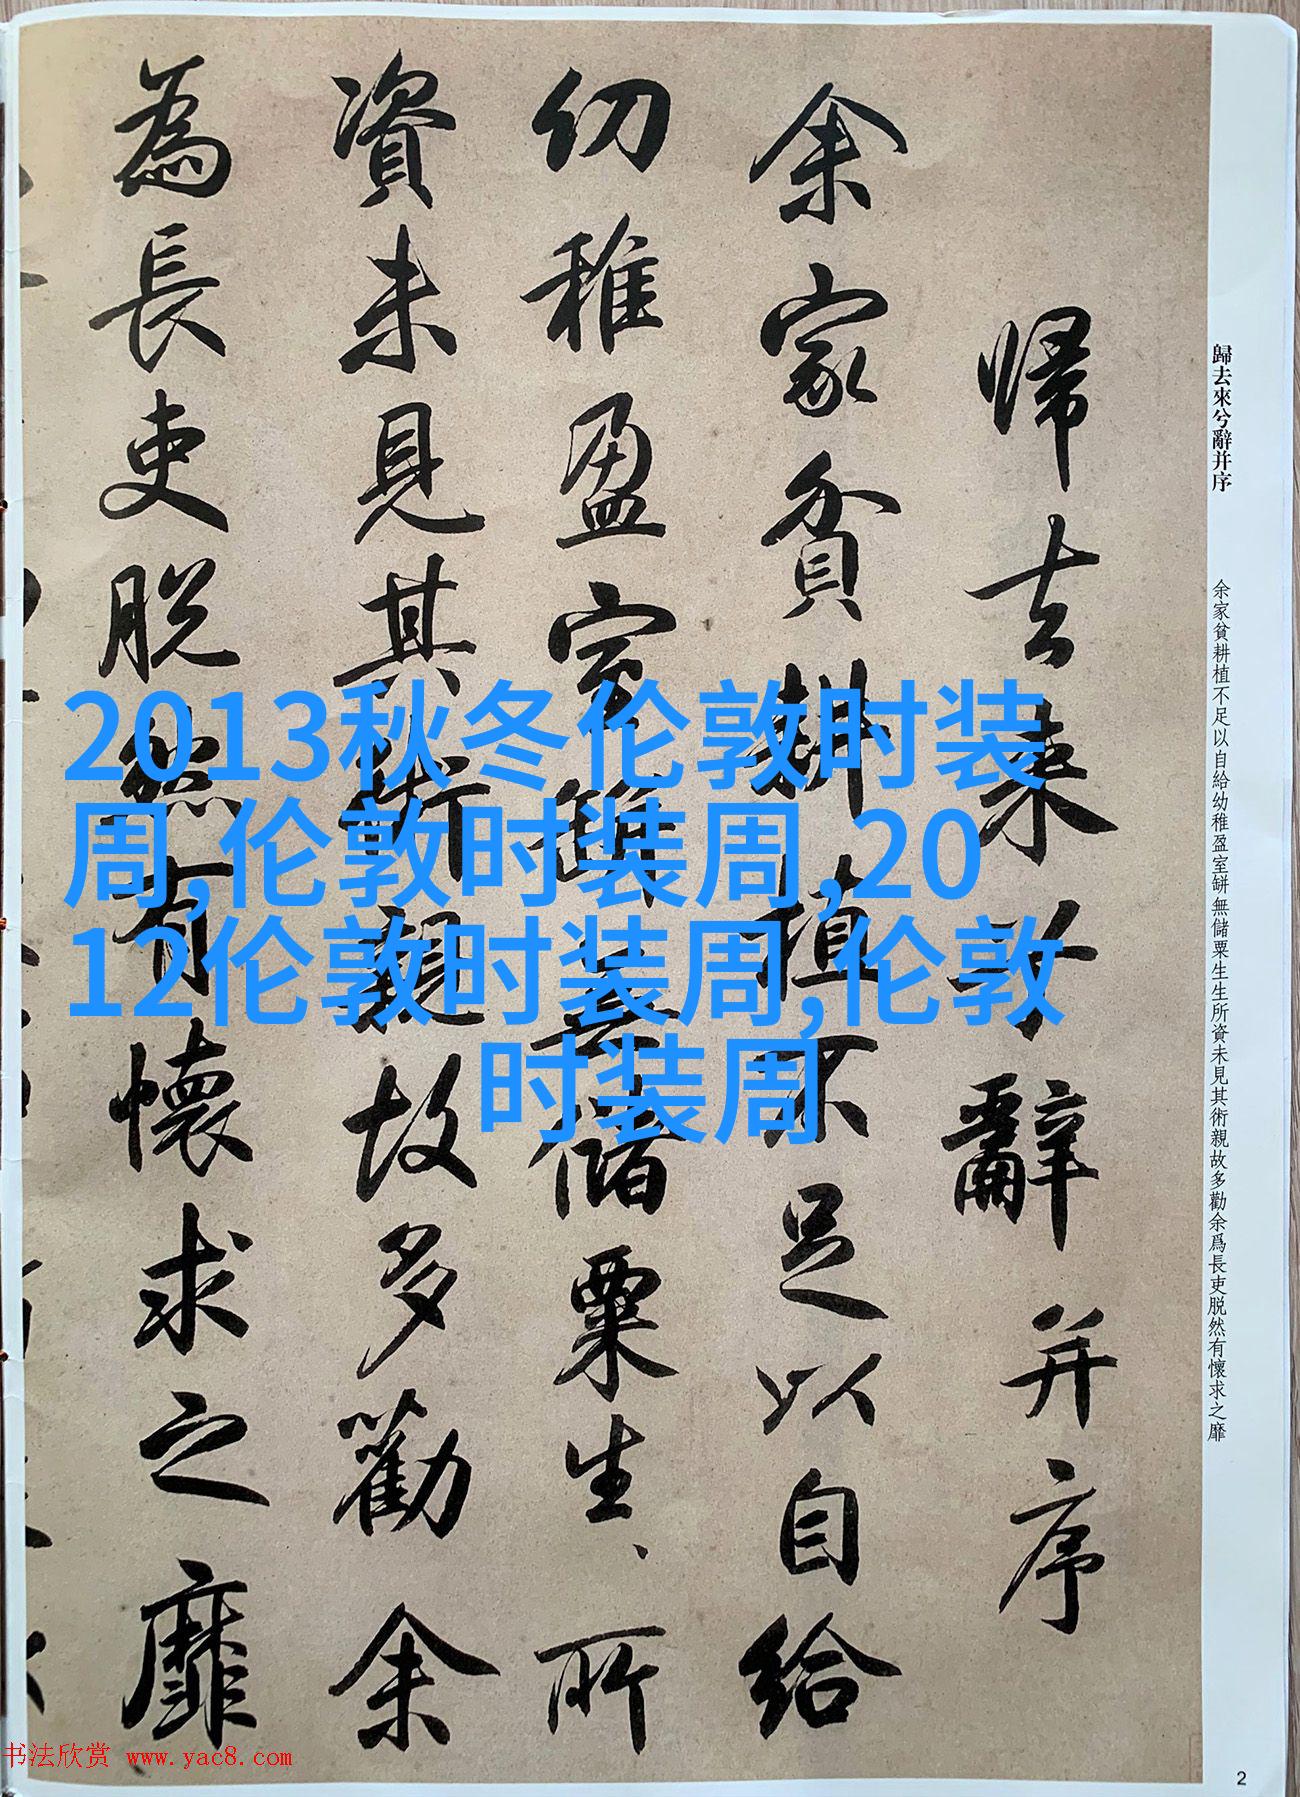 歸去來兮辭并序
余家貧耕植不足以自給幼稚盈室缾無儲粟生生所資未見其術親故多勸余爲長吏脱然有懷求之靡
帰去来兮辞并序
余家貧耕植不足以自給
幼稚盈室缾無儲粟生、所
資未見其術親故多勸余
為長吏脱然有懷求之靡
2013秋冬伦敦时装
周,伦敦时装周,20
12伦敦时装周,伦敦
时装周
书法欣赏 www.yac8.com
2